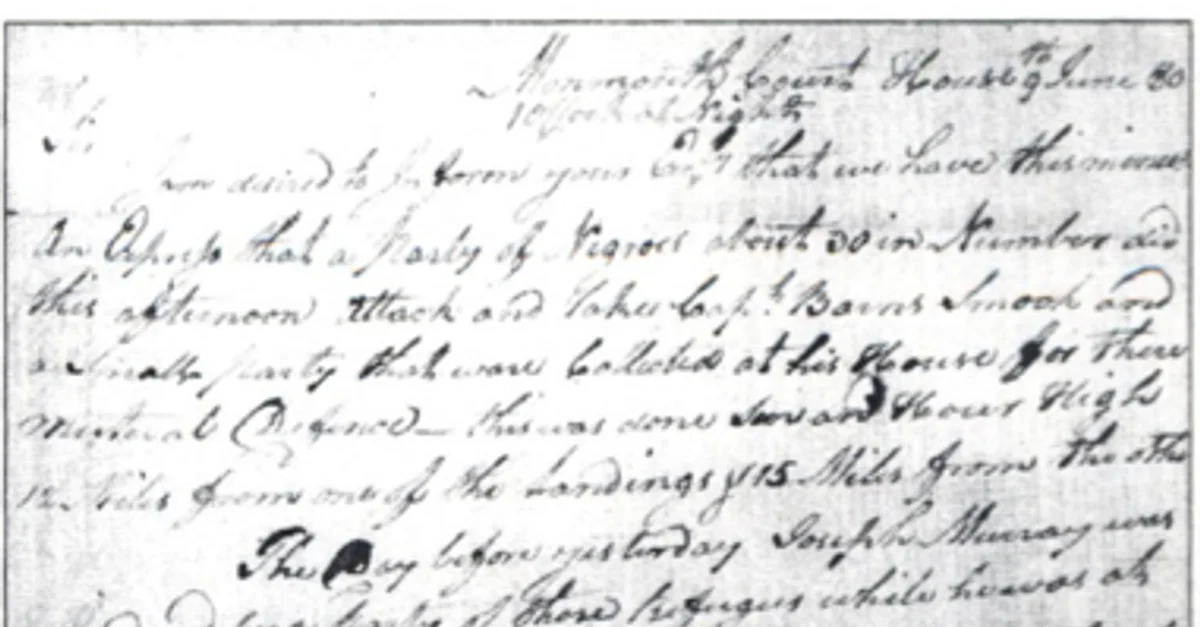 Monmouth Court House 9th June 80
10 Clock at Night
Sir
I am desired to Inform your Excy that we have this minute
An Express that a Party of Negroes about 30 in Number did
this afternoon Attack and Take Capt. Barns Smock and
a Small party that ware Collected at his House for there
Mutual Defence — this was done Sun an Hour High
12 Miles from one of the Landings & 15 Miles from the other
The Day before yesterday Joseph Murray was
by a Party of those Refugees while he was at